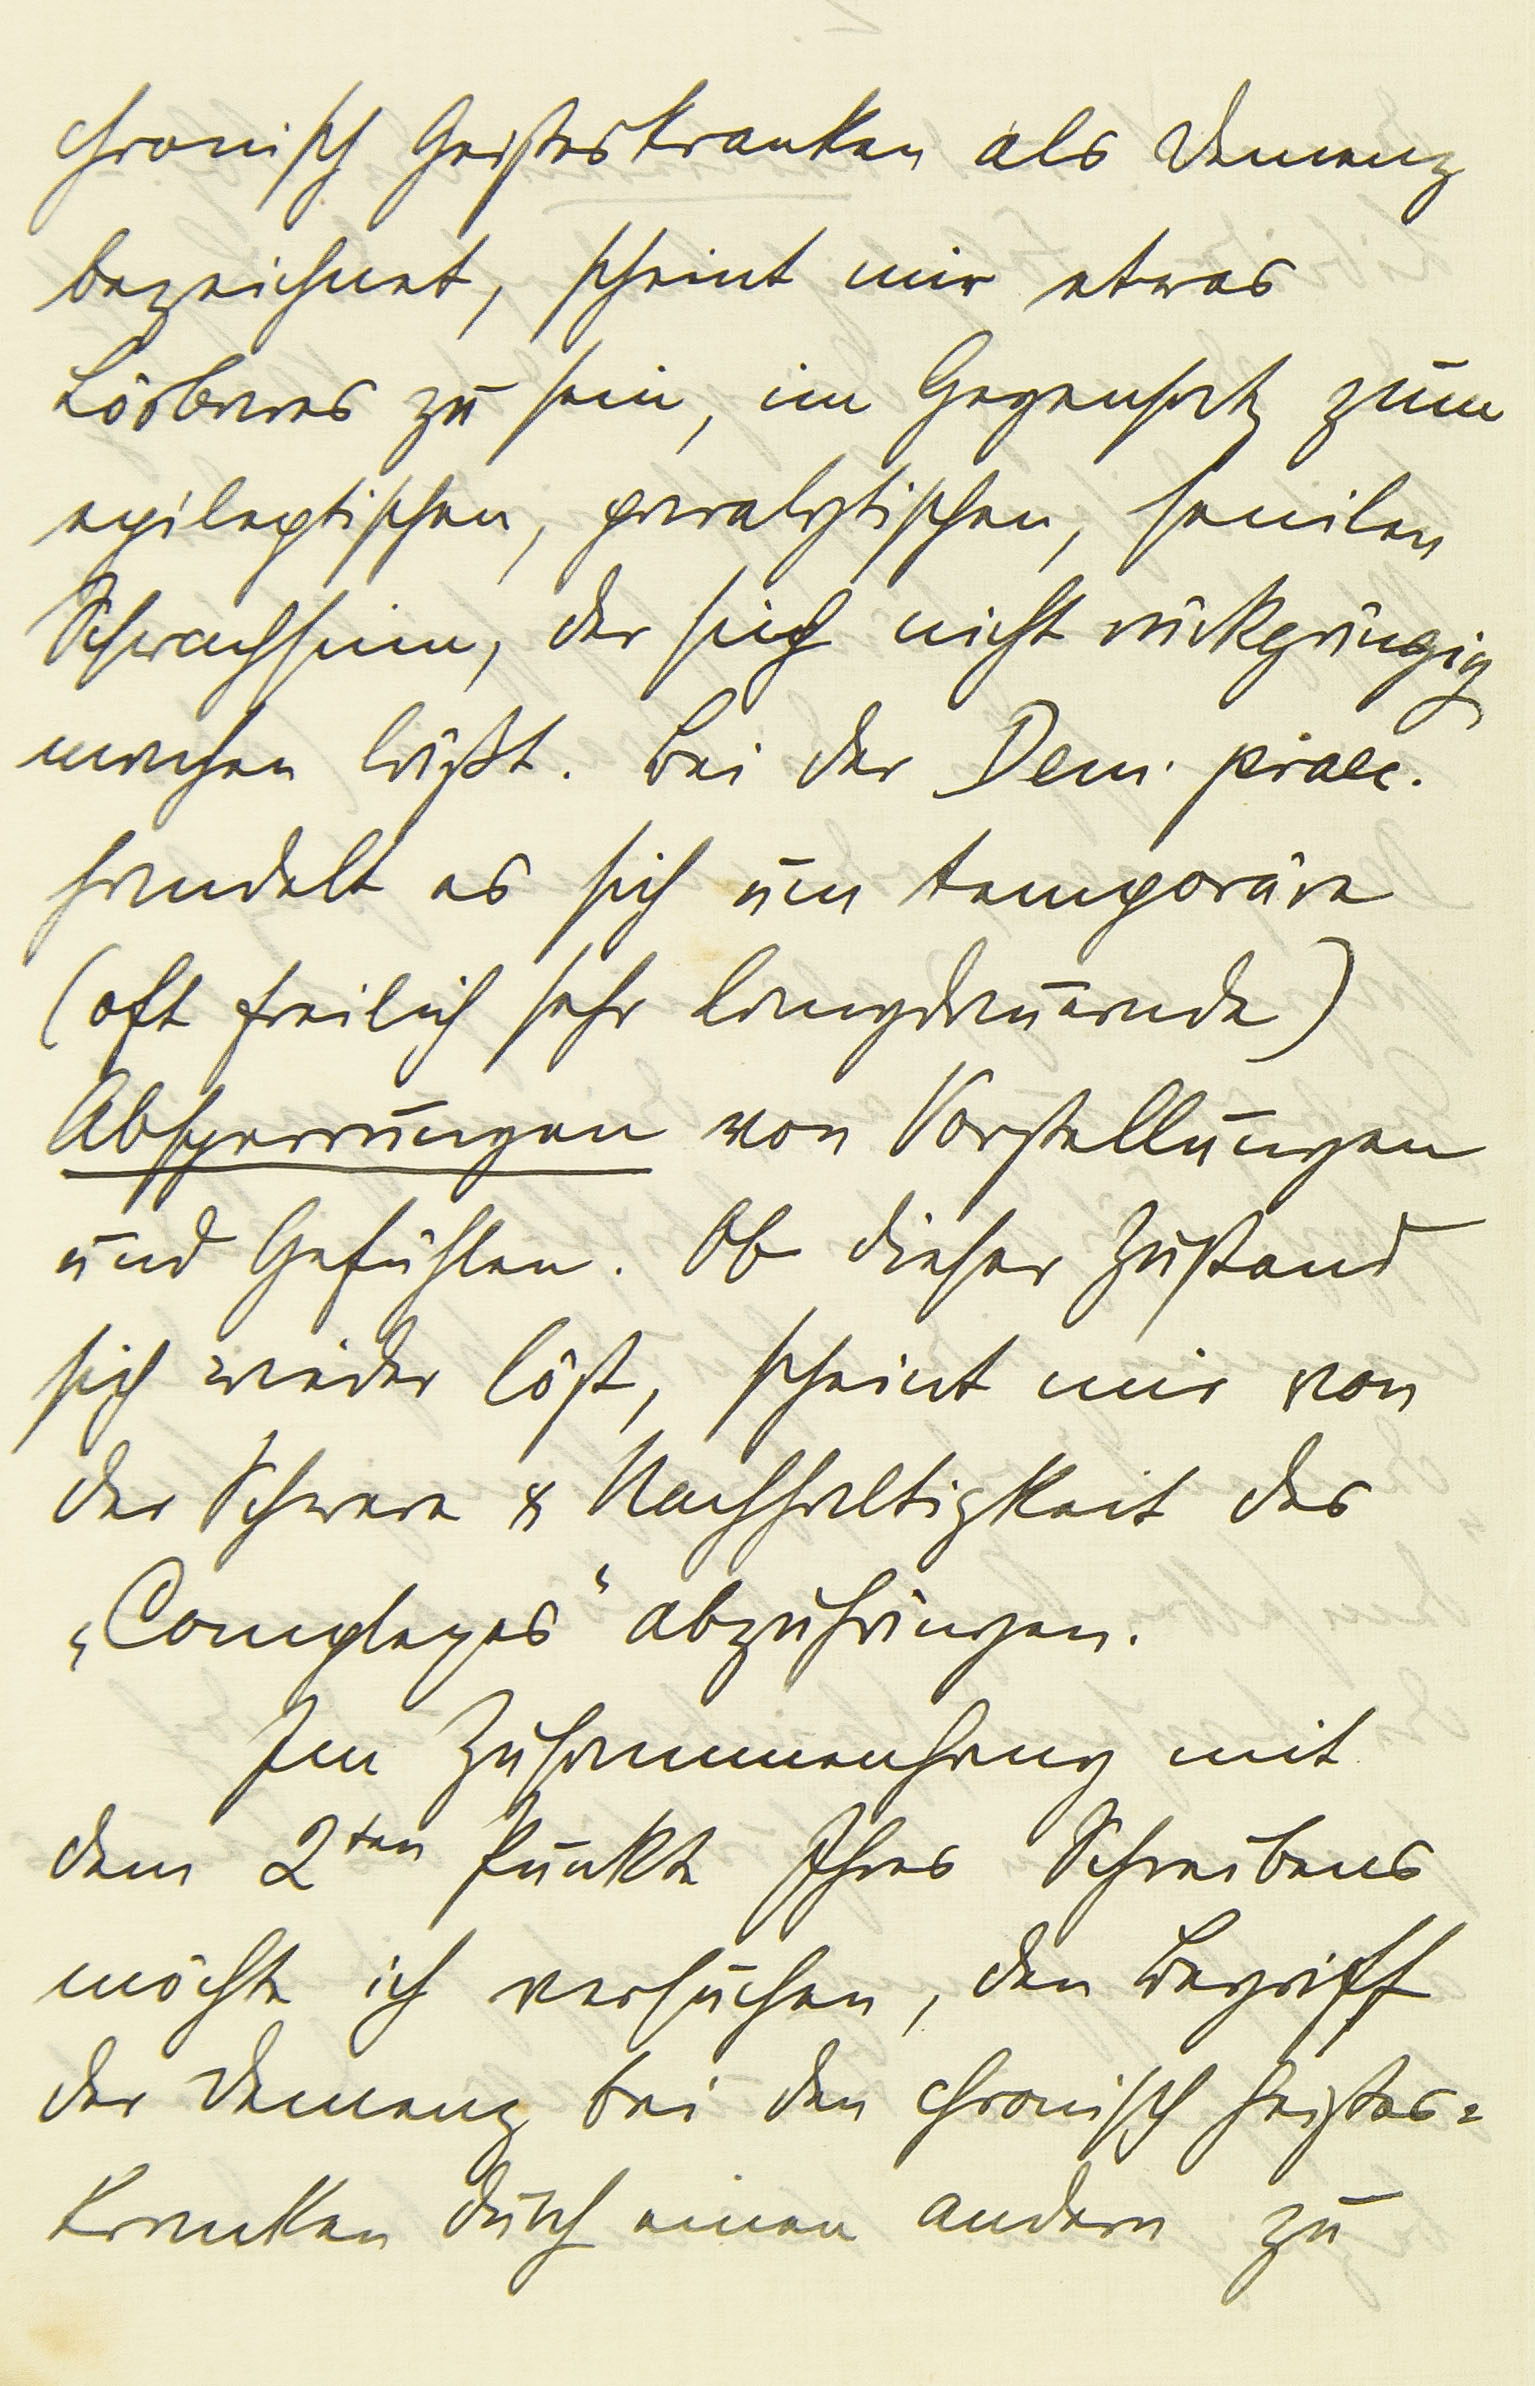 chronisch Geisteskranken als Demenz
bezeichnet, scheint mir etwas
Lösbares zu sein, im Gegensatz zum
epileptischen, paralytischen, senilen
Schwachsinn, der sich nicht rückgängig
machen läßt. Bei der Dem. praec.
handelt es sich um temporäre
(oft freilich sehr langdauernde)
Absperrungen von Vorstellungen
und Gefühlen. Ob dieser Zustand
sich wieder löst, scheint mir von
der Schwere & Nachhaltigkeit des
„Complexes“ abzuhängen.
Im Zusammenhang mit
dem 2ten Punkte Ihres Schreibens
möchte ich versuchen, den Begriff
der Demenz bei den chronisch Geistes=
kranken durch einen andern zu